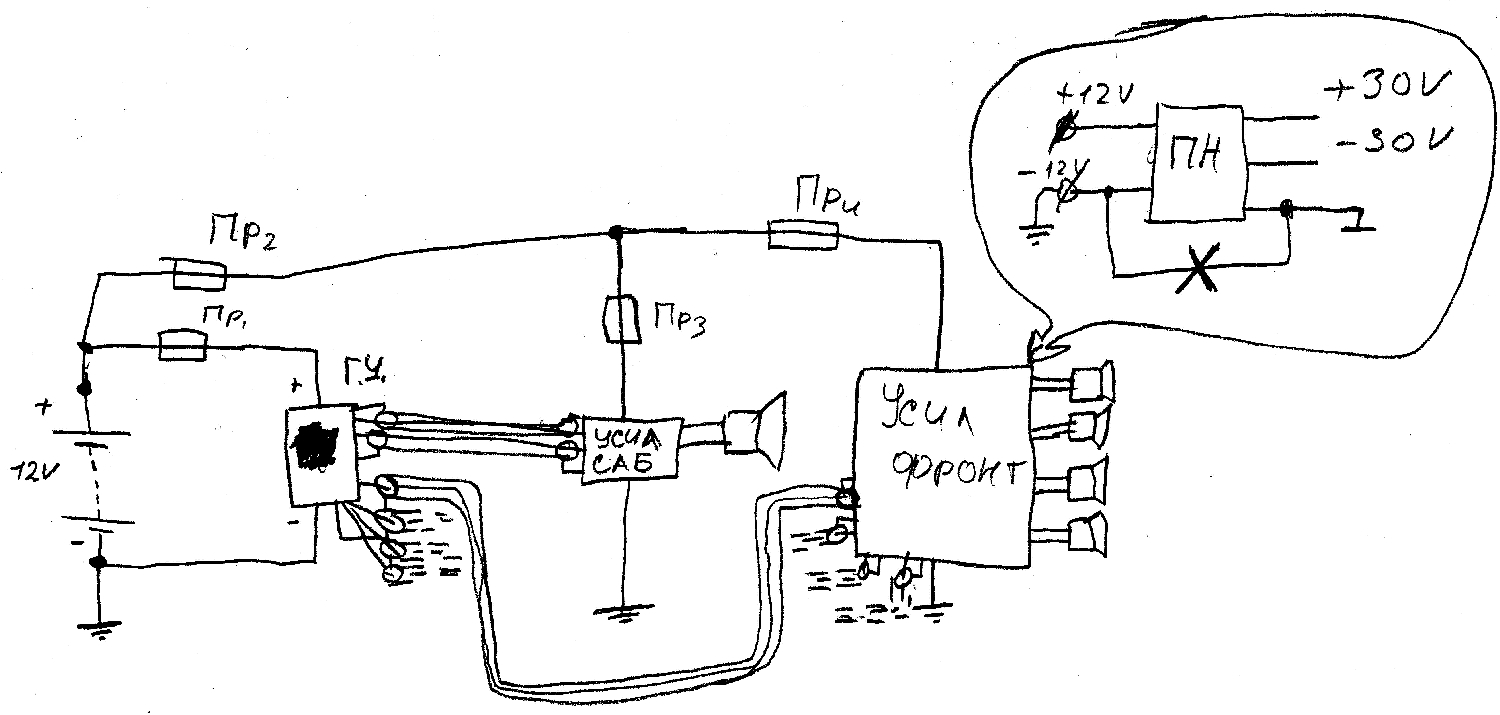 +12V
+30V
-30V
ПН
-12V
Пр4
Пр2
Пр1
Пр3
Г.У.
+
+
12V
-
-
УСИЛ
САБ
Усил
ФРОНТ